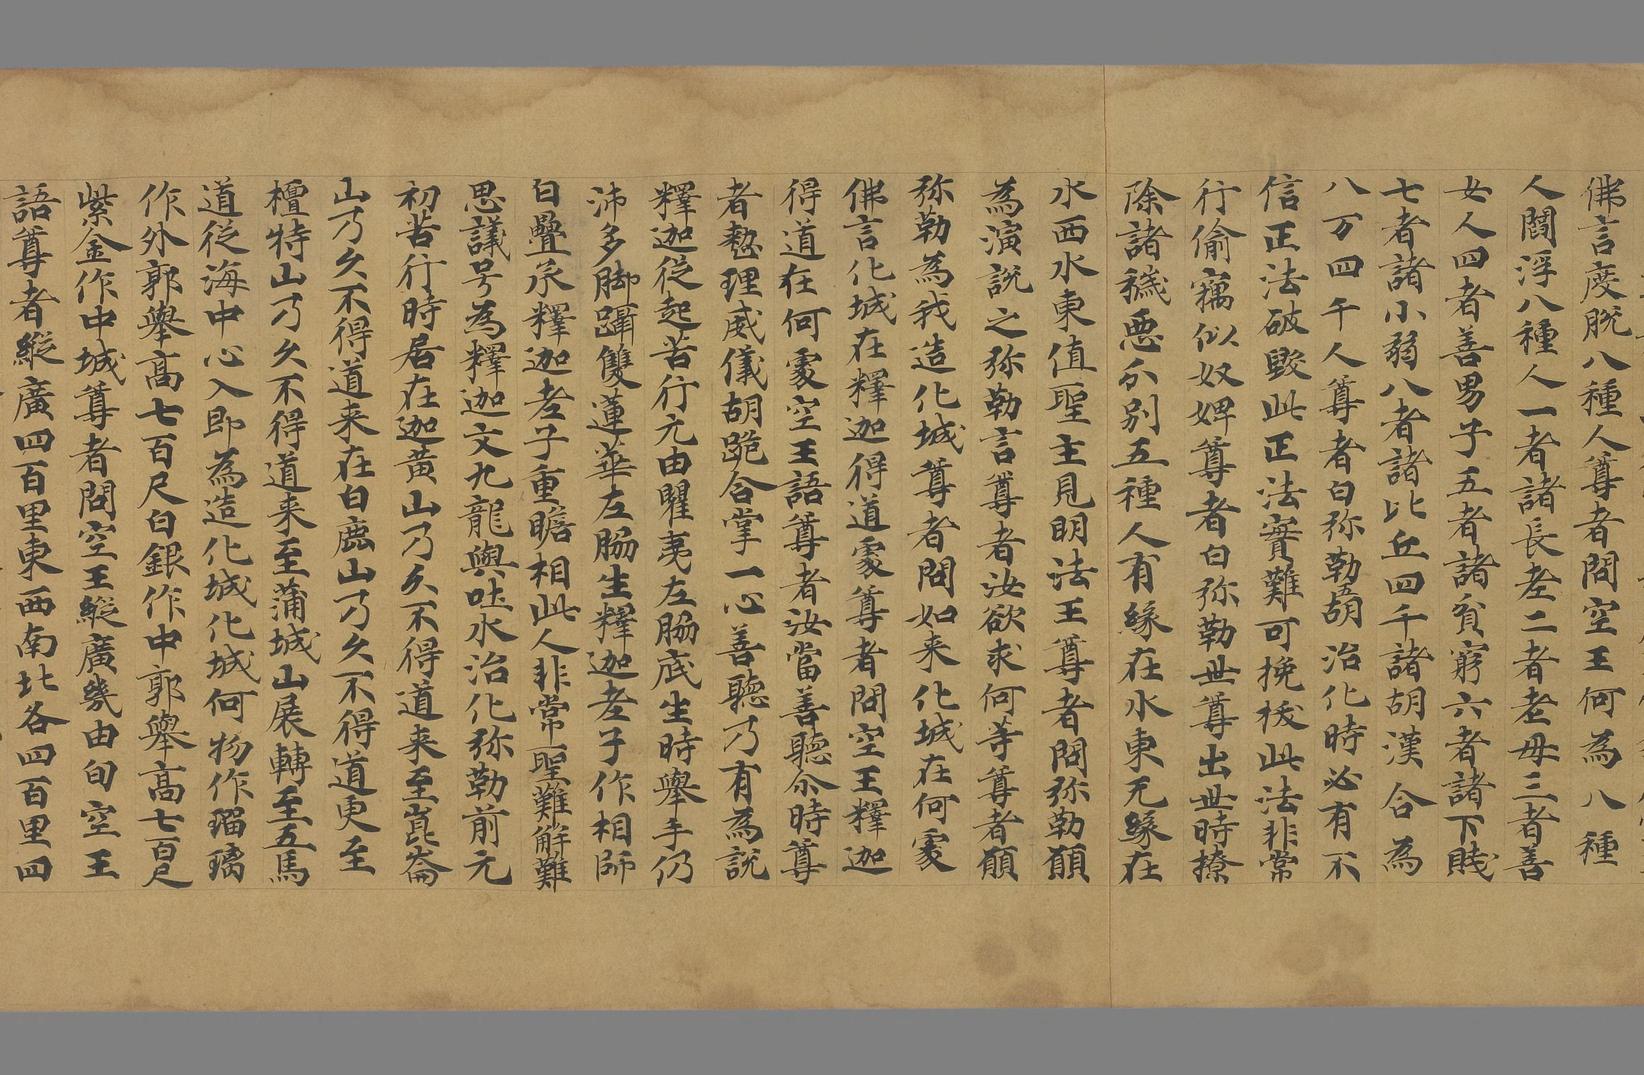 佛言度脱八種人尊者問空王何為八種
人閻浮八種人一者諸長老二者老母三者善
女人四者善男子五者諸貧窮六者諸下賤
七者諸小弱八者諸比丘四千諸胡漢合為
八万四千人尊者白弥勒五胡治化時必有不
信正法破毀此正法實難可挽拔此法非常
行偷竊似奴婢尊者白弥勒世尊出世時撩
除諸穢惡分別五種人有緣在水東无緣在
水西水東值聖主見明法王尊者問弥勒願
為演說之弥勒言尊者汝欲求何等尊者願
弥勒為我造化城尊者問如来化城在何處
佛言化城在釋迦得道處尊者問空王釋迦
得道在何處空王語尊者汝當善聽尒時尊
者整理威儀胡跪合掌一心善聽乃有為說
釋迦從起苦行元由瞿夷左脇底生時舉手仍
沛多脚躡雙蓮華左脇生釋迦老子作相師
白疊承釋迦老子重瞻相此人非常聖難解難
思議号為釋迦文九龍與吐水治化弥勒前元
初苦行時居在迦黄山乃久不得道来至崑崙
山乃久不得道来在白鹿山乃久不得道更至
檀特山乃久不得道来至蒲城山展轉至五馬
道從海中心入即為造化城化城何物作瑠璃
作外郭舉高七百尺白銀作中郭舉高七百尺
紫金作中城尊者問空王縱廣幾由旬空王
語尊者縱廣四百里東西南北各四百里四